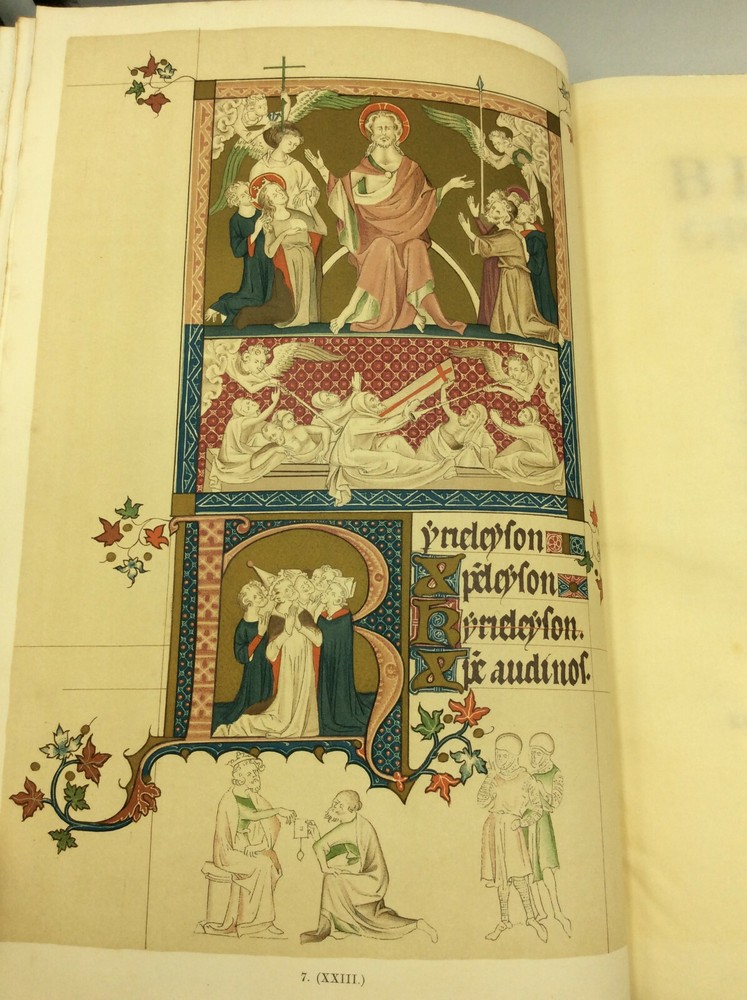 Kyrieleyson
Xp̄eleyson
Kyrieleyson.
Xp̄e audinos.
7. (XXIII.)